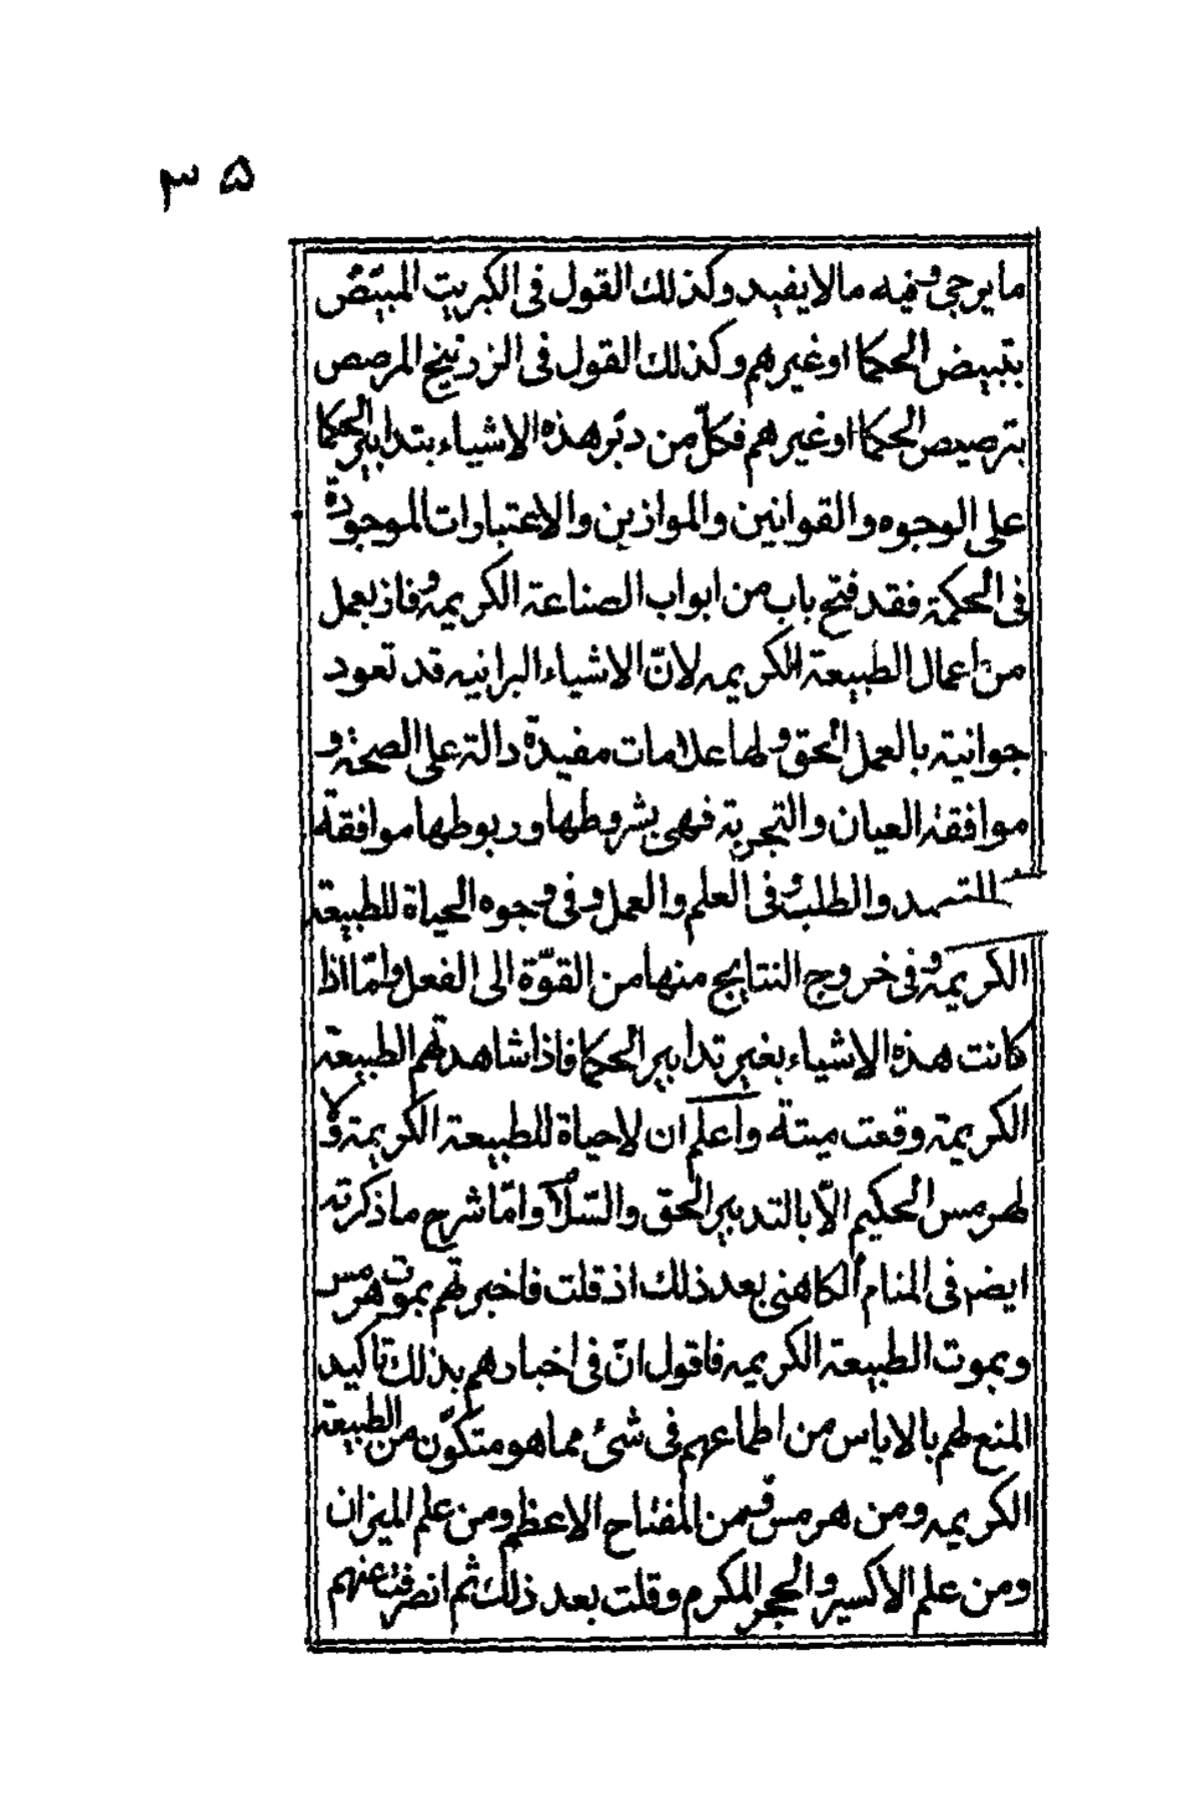 ٣٥
ما يرجى وفيه مالا يفيد وكذلك القول فى الكبريت المبيّض
بتبييض الحكما اوغيرهم وكذلك القول فى الزرنيخ المرصص
بترصيص الحكما اوغيرهم فكلّ من دبّر هذه الاشياء بتدابير الحكما
على الوجوه والقوانين والموازين والاعتبارات الموجودة
فى الحكمة فقد فتح باب من ابواب الصناعة الكريمة وفاز بعمل
من اعمال الطبيعة الكريمه لانّ الاشياء البرانيه قد تعود
جوانية بالعمل الحق ولها علامات مفيدة دالة على الصحة و
موافقة العيان والتجربة فهى بشروطها وربوطها موافقة
والطلب فى العلم والعمل وفى وجوه الحياة للطبيعة
الكريمة وفى خروج النتايج منها من القوّة الى الفعل وامّا اذا
كانت هذه الاشياء بغير تدابير الحكما فاذا شاهدتهم الطبيعة
الكريمة وقعت ميتة واعلم ان لاحياة للطبيعة الكريمة ولا
لهرمس الحكيم الاّ بالتدبير الحق والسّلام وامّا شرح ما ذكرته
ايضا فى المنام الكاهنى بعد ذلك اذ قلت فاخبرتهم بموت هرمس
وبموت الطبيعة الكريمه فاقول انّ فى اخبارهم بذلك تاكيد
المنع لهم بالاياس من اطماعهم فى شئ مما هو متكوّن من الطبيعة
الكريمه ومن هرمس ومن المفتاح الاعظم ومن علم الميزان
ومن علم الاكسير والحجر المكرم وقلت بعد ذلك ثم انصرفت عنهم